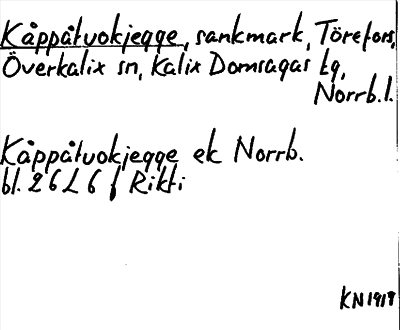 Kåppåtvokjegge, sankmark, Törefors,
Överkalix sn, Kalix Domsagas tg,
Norrb.l.
Kåppåtvokjegge ek Norrb.
bl. 26L6f Rikti
KN1919